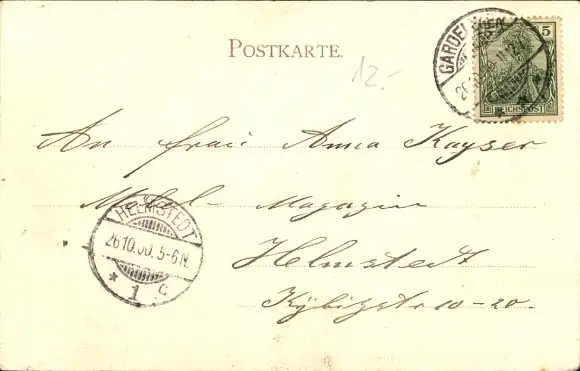 POSTKARTE.
12.-
GARDELEGEN
26.10.
5
REICHSPOST
An frau Anna Kayser
Möbel-Magazin
HELMSTEDT
26.10.00.5-6N.
* 1 c
Helmstedt
10-20.